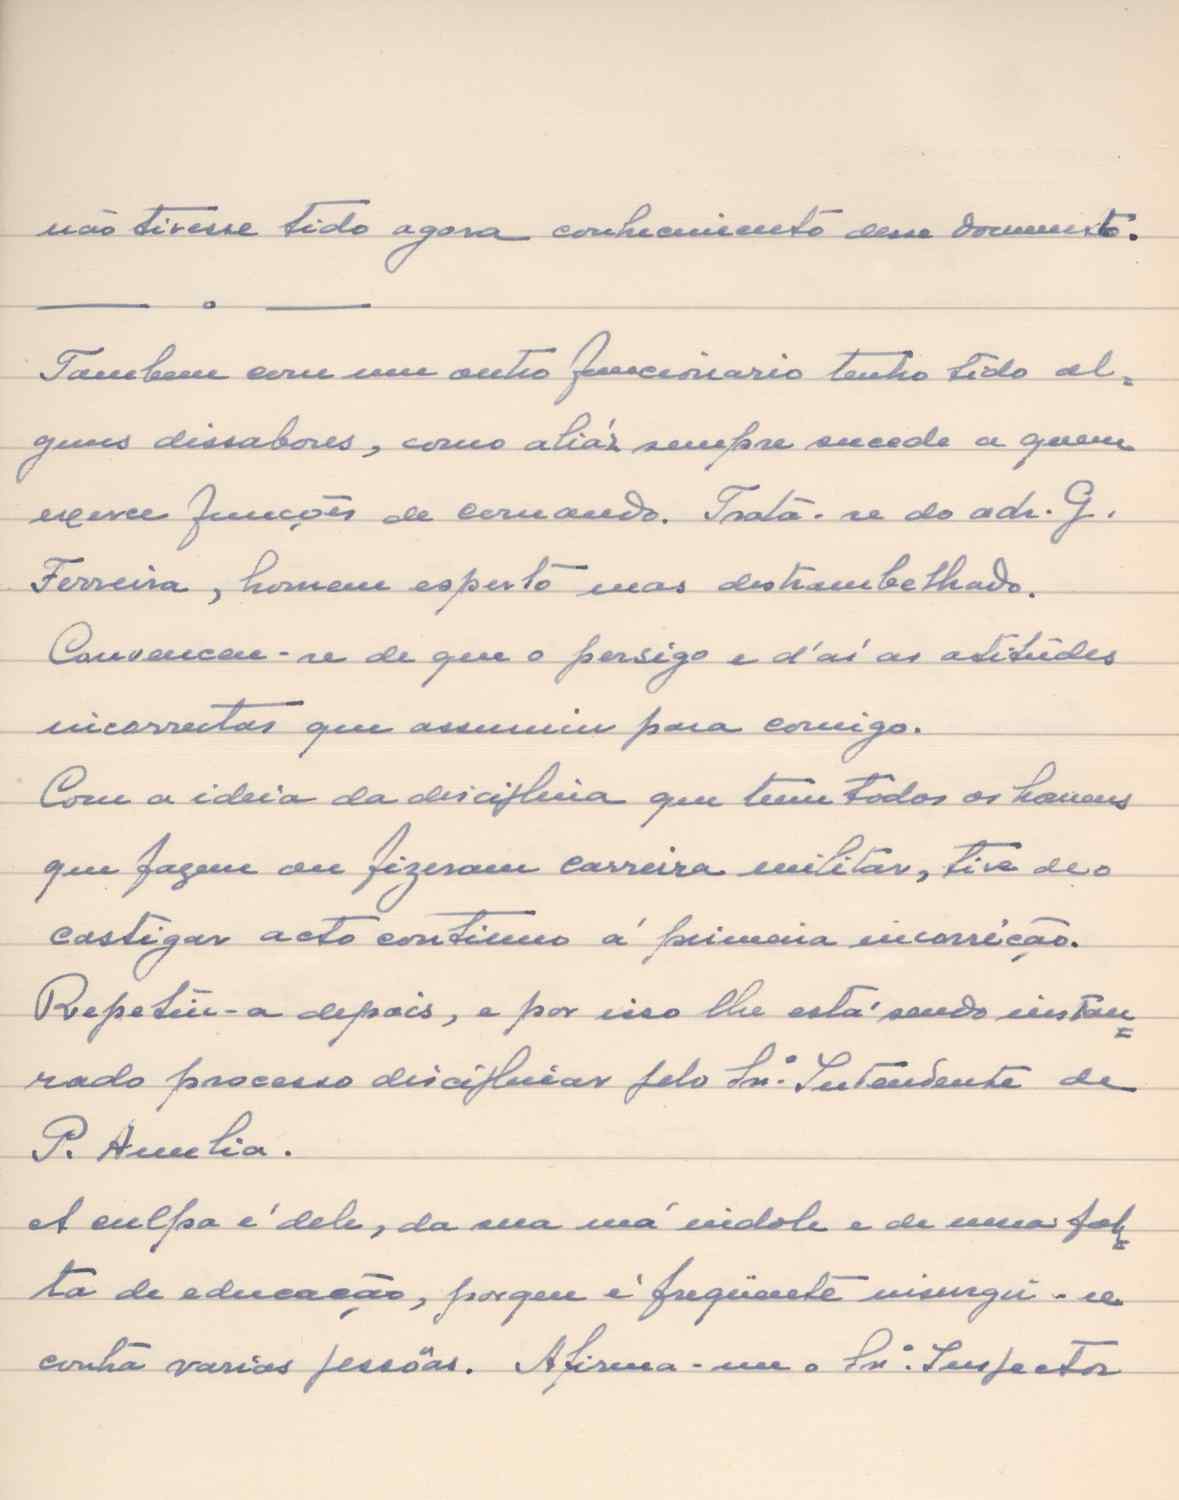 não tivesse tido agora conhecimento desse documento.
— o —
Tambem com um outro funcionario tenho tido al=
guns dissabores, como aliáz sempre sucede a quem
exerce funções de comando. Trata-se do adm. G.
Ferreira, homem esperto mas destrambelhado.
Convenceu-se de que o persigo e d'aí as atitudes
incorrectas que assumiu para comigo.
Com a ideia da disciplina que teem todos os homens
que fazem ou fizeram carreira militar, tive de o
castigar acto continuo á primeira incorreção.
Repetiu-a depois, e por isso lhe está sendo instau=
rado processo disciplinar pelo Snr. Intendente de
P. Amelia.
A culpa é dele, da sua má indole e de uma fal=
ta de educação, porque é freqüente insurgir-se
contra varias pessôas. Afirma-me o Snr. Inspector